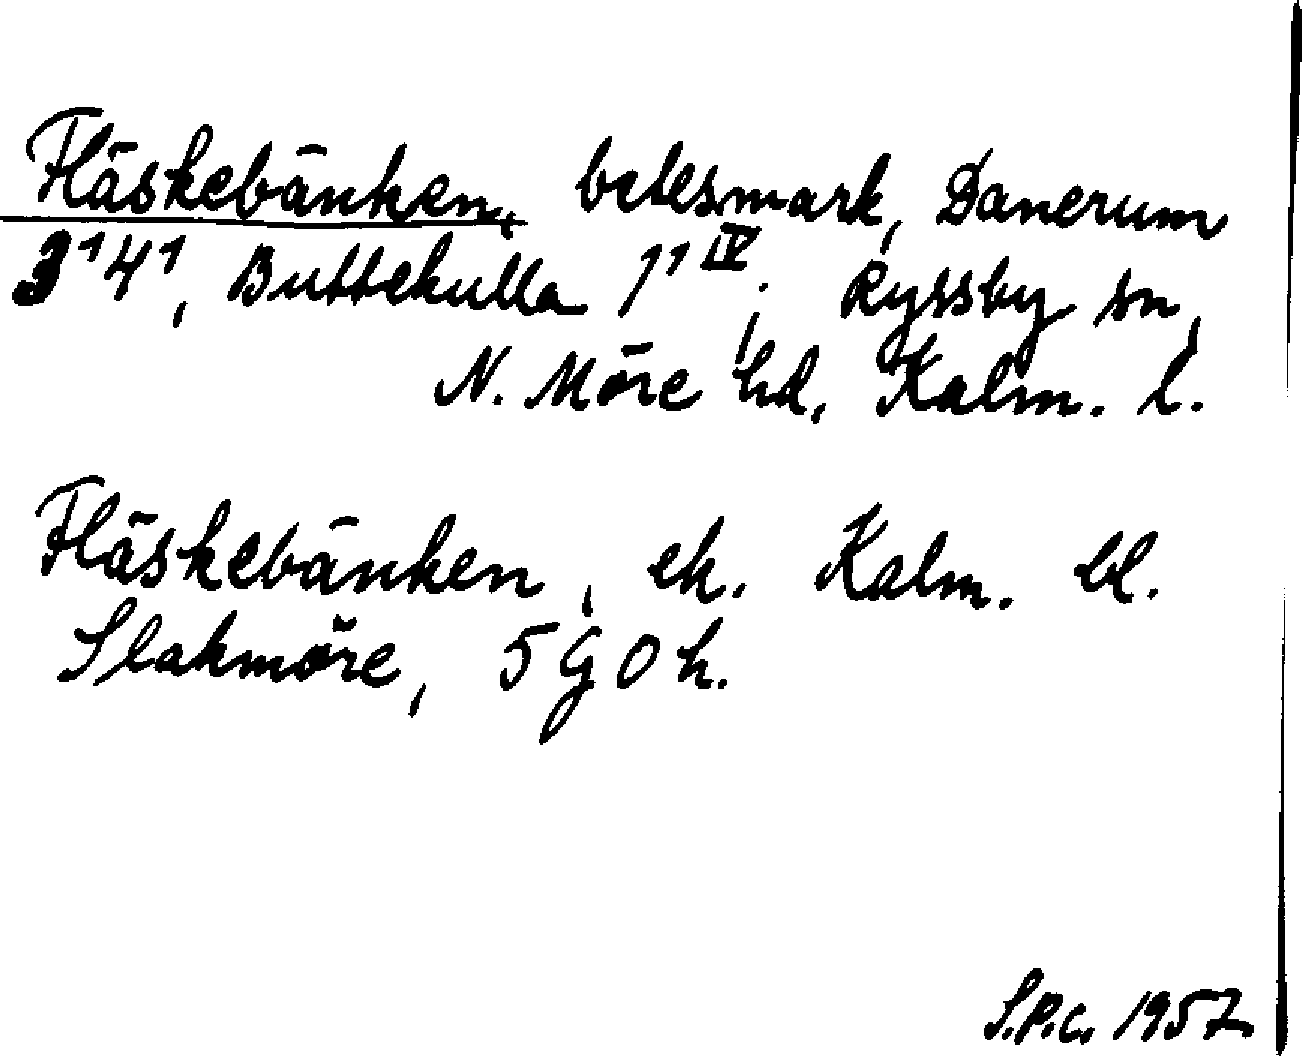 Fläskebänken, betesmark, Danerum
3¹4¹, Buttekulla 1¹ᴵⱽ; Ryssby sn,
N. Möre hd, Kalm. l.
Fläskebänken, ek. Kalm. bl.
Slakmöre, 5 G O h.
S.P.C. 1957